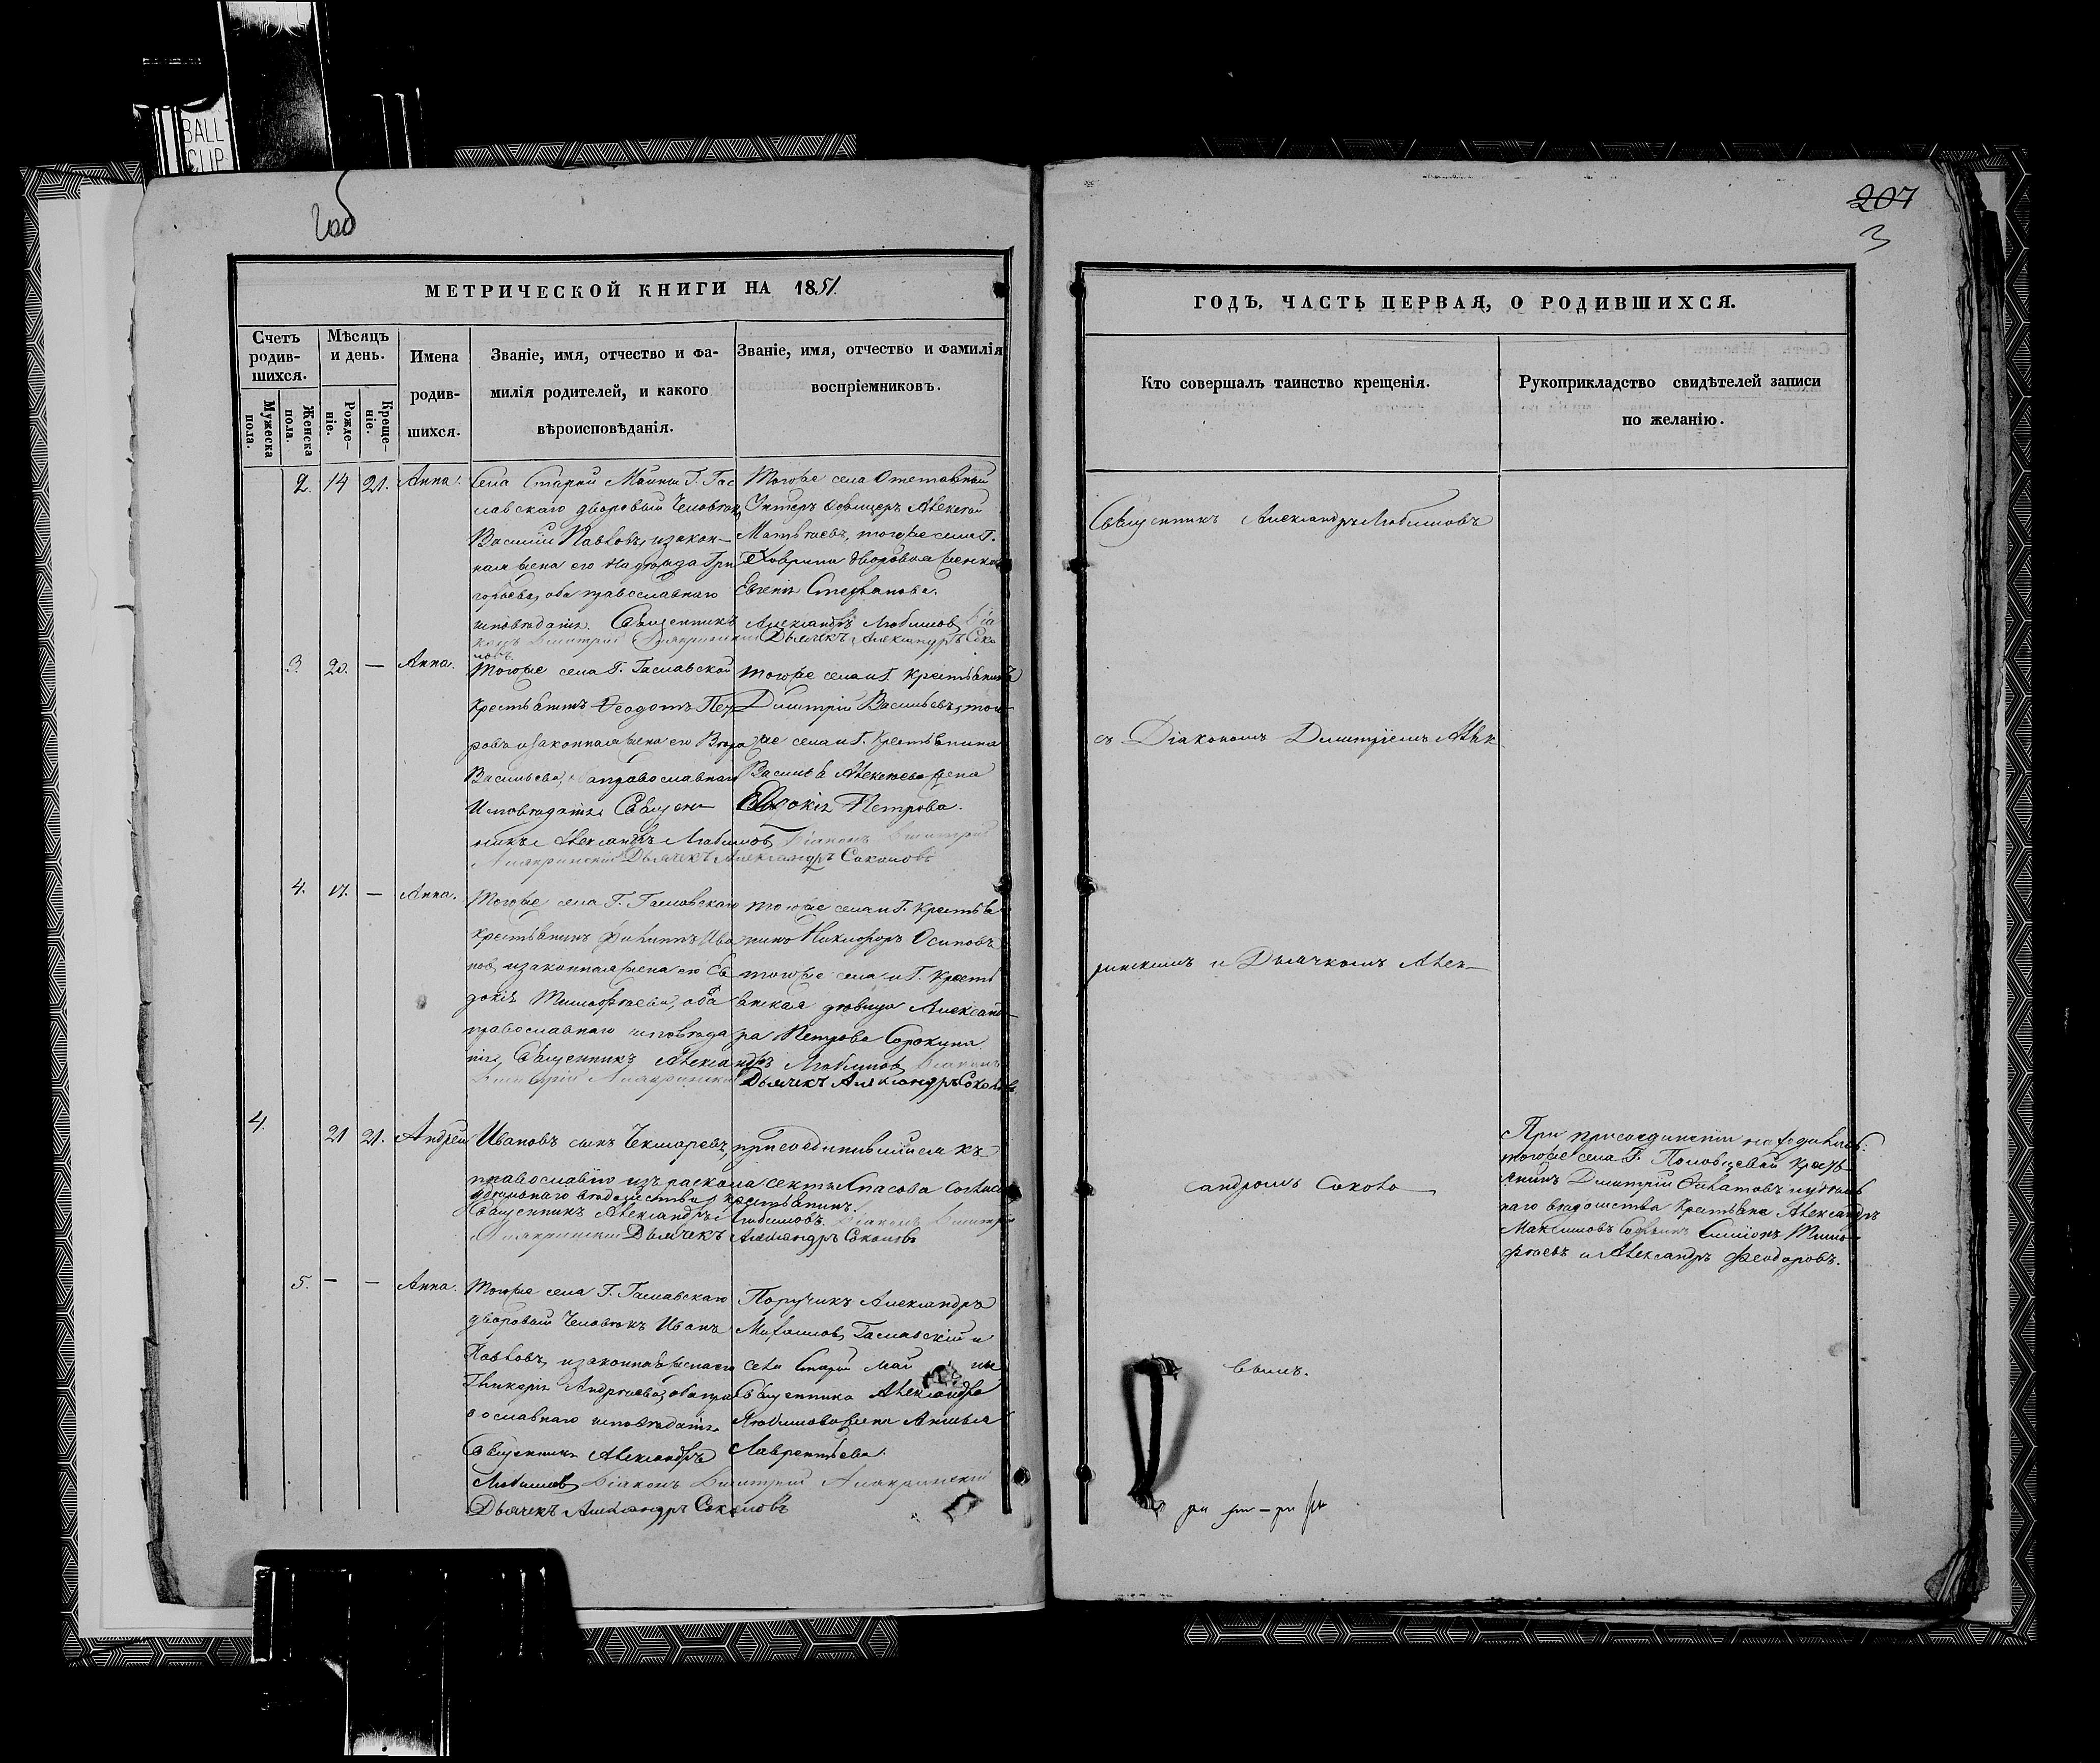 BALL
CLIP
207
3
МЕТРИЧЕСКОЙ КНИГИ НА 1851.
Счетъ родив-шихся.
Мѣсяцъ и день.
Имена родив-шихся.
Званіе, имя, отчество и фа-
милія родителей, и какого
вѣроисповѣданія.
Званіе, имя, отчество и фамилія
воспріемниковъ.
Мужеска пола.
Женска пола.
Рожде-ніе.
Креще-ніе.
2. 14 21. Анна.
Села Старой Майны Г. Гас
лавскаго дворовый человѣкъ
Василій Павловъ, и закон-
ная жена его Надежда Гри
горьева, оба православнаго
исповѣданія. Священникъ Александръ Любимовъ Діа
конъ Димитрій Дьячекъ Александръ Соко
ловъ
Тогоже села отставный
Унтеръ Офицеръ Алексей
Матвѣевъ, тогоже села Г.
дворовая женка
Евгенія Степанова.
3. 20. — Анна.
Тогоже села Г. Гаславскаго
крестьянинъ Ѳеодотъ Пет
ровъ и законная жена его Вѣра
Васильева, оба православнаго
Исповѣданія Священ
никъ Александръ Любимовъ Діаконъ Димитрій
Дьячекъ Александръ Соколовъ
тогоже села и Г. крестьянинъ
Димитрій Васильевъ, того
же села и Г. крестьянина
Василья Алексѣева жена
Евдокія Петрова.
4. 17. — Анна.
Тогоже села Г. Гаславскаго
крестьянинъ Филиппъ Ива
новъ, и законная жена его Ев
докія Тимофѣева, оба
православнаго исповѣда
нія Священникъ Александръ Любимовъ Діаконъ
Димитрій Дьячекъ Александръ Соколовъ
тогоже села и Г. крестья
нинъ Никифоръ Осиповъ
тогоже села и Г. кресть
янская дѣвица Александ
ра Петрова Сорокина
4. 21 21. Андрей
Ивановъ сынъ Чекмаревъ, присоединившійся къ
православію изъ раскола секты Спасова Согласія
удѣльнаго вѣдомства крестьянинъ.
Священникъ Александръ Любимовъ. Діаконъ Димитрій
Дьячекъ Александръ Соколовъ
5. — — Анна.
Тогоже села Г. Гаславскаго
дворовый человѣкъ Иванъ
Павловъ, и законная жена его
Гликерія Андреева, оба пра
вославнаго исповѣданія
Священникъ Александръ
Любимовъ Діаконъ Димитрій
Дьячекъ Александръ Соколовъ
Поручикъ Александръ
Михаиловъ Гаславскій и
села Старой Май ны
Священника Александра
Любимова жена
Лаврентьева.
ГОДЪ, ЧАСТЬ ПЕРВАЯ, О РОДИВШИХСЯ.
Кто совершалъ таинство крещенія.
Рукоприкладство свидѣтелей записи
по желанію.
Священникъ Александръ Любимовъ
съ Діакономъ Димитріемъ
ринскимъ и Дьячкомъ Алек-
сандромъ Соколо
вымъ.
При присоединеніи находились:
тогоже села Г. Половцевой кресть
янинъ Димитрій и удѣль
наго вѣдомства крестьяне Александръ
Максимовъ Симіонъ Тимо
фѣевъ и Александръ Феодоровъ.